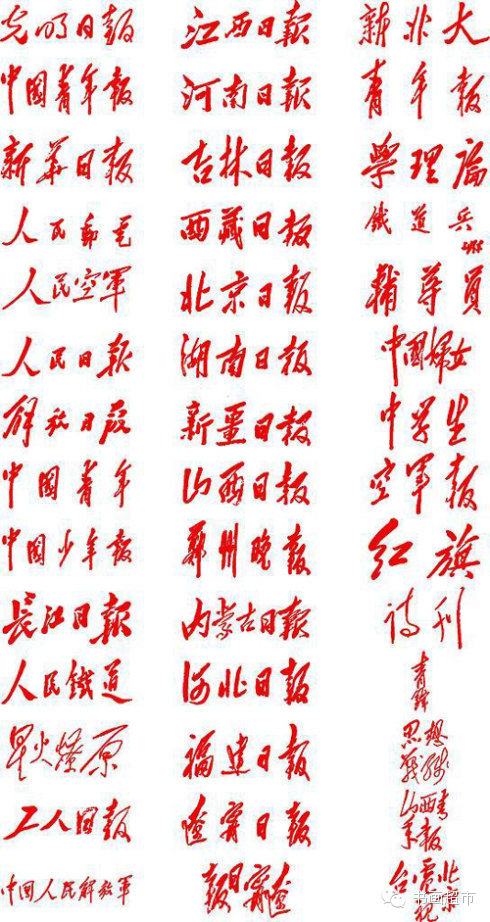 光明日報
中國青年報
新華日报
人民郵電
人民空軍
人民日報
解放日报
中國青年
中國少年報
長江日报
人民鐵道
星火燎原
工人日报
中國人民解放軍
江西日報
河南日報
吉林日报
西藏日报
北京日报
湖南日报
新疆日报
山西日报
鄭州晚报
内蒙古日报
河北日报
福建日报
遼宁日报
報日寧遼
新北大
青年报
學理論
鐵道兵
輔導員
中國婦女
中学生
空軍報
红旗
诗刊
思想
戰線
山西青
年報
台電北
視京
书画超市